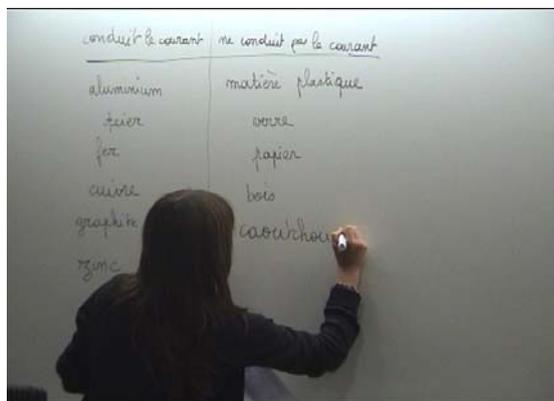 conduit le courant ne conduit pas le courant
aluminium matière plastique
acier verre
fer papier
cuivre bois
graphite caoutchou
zinc